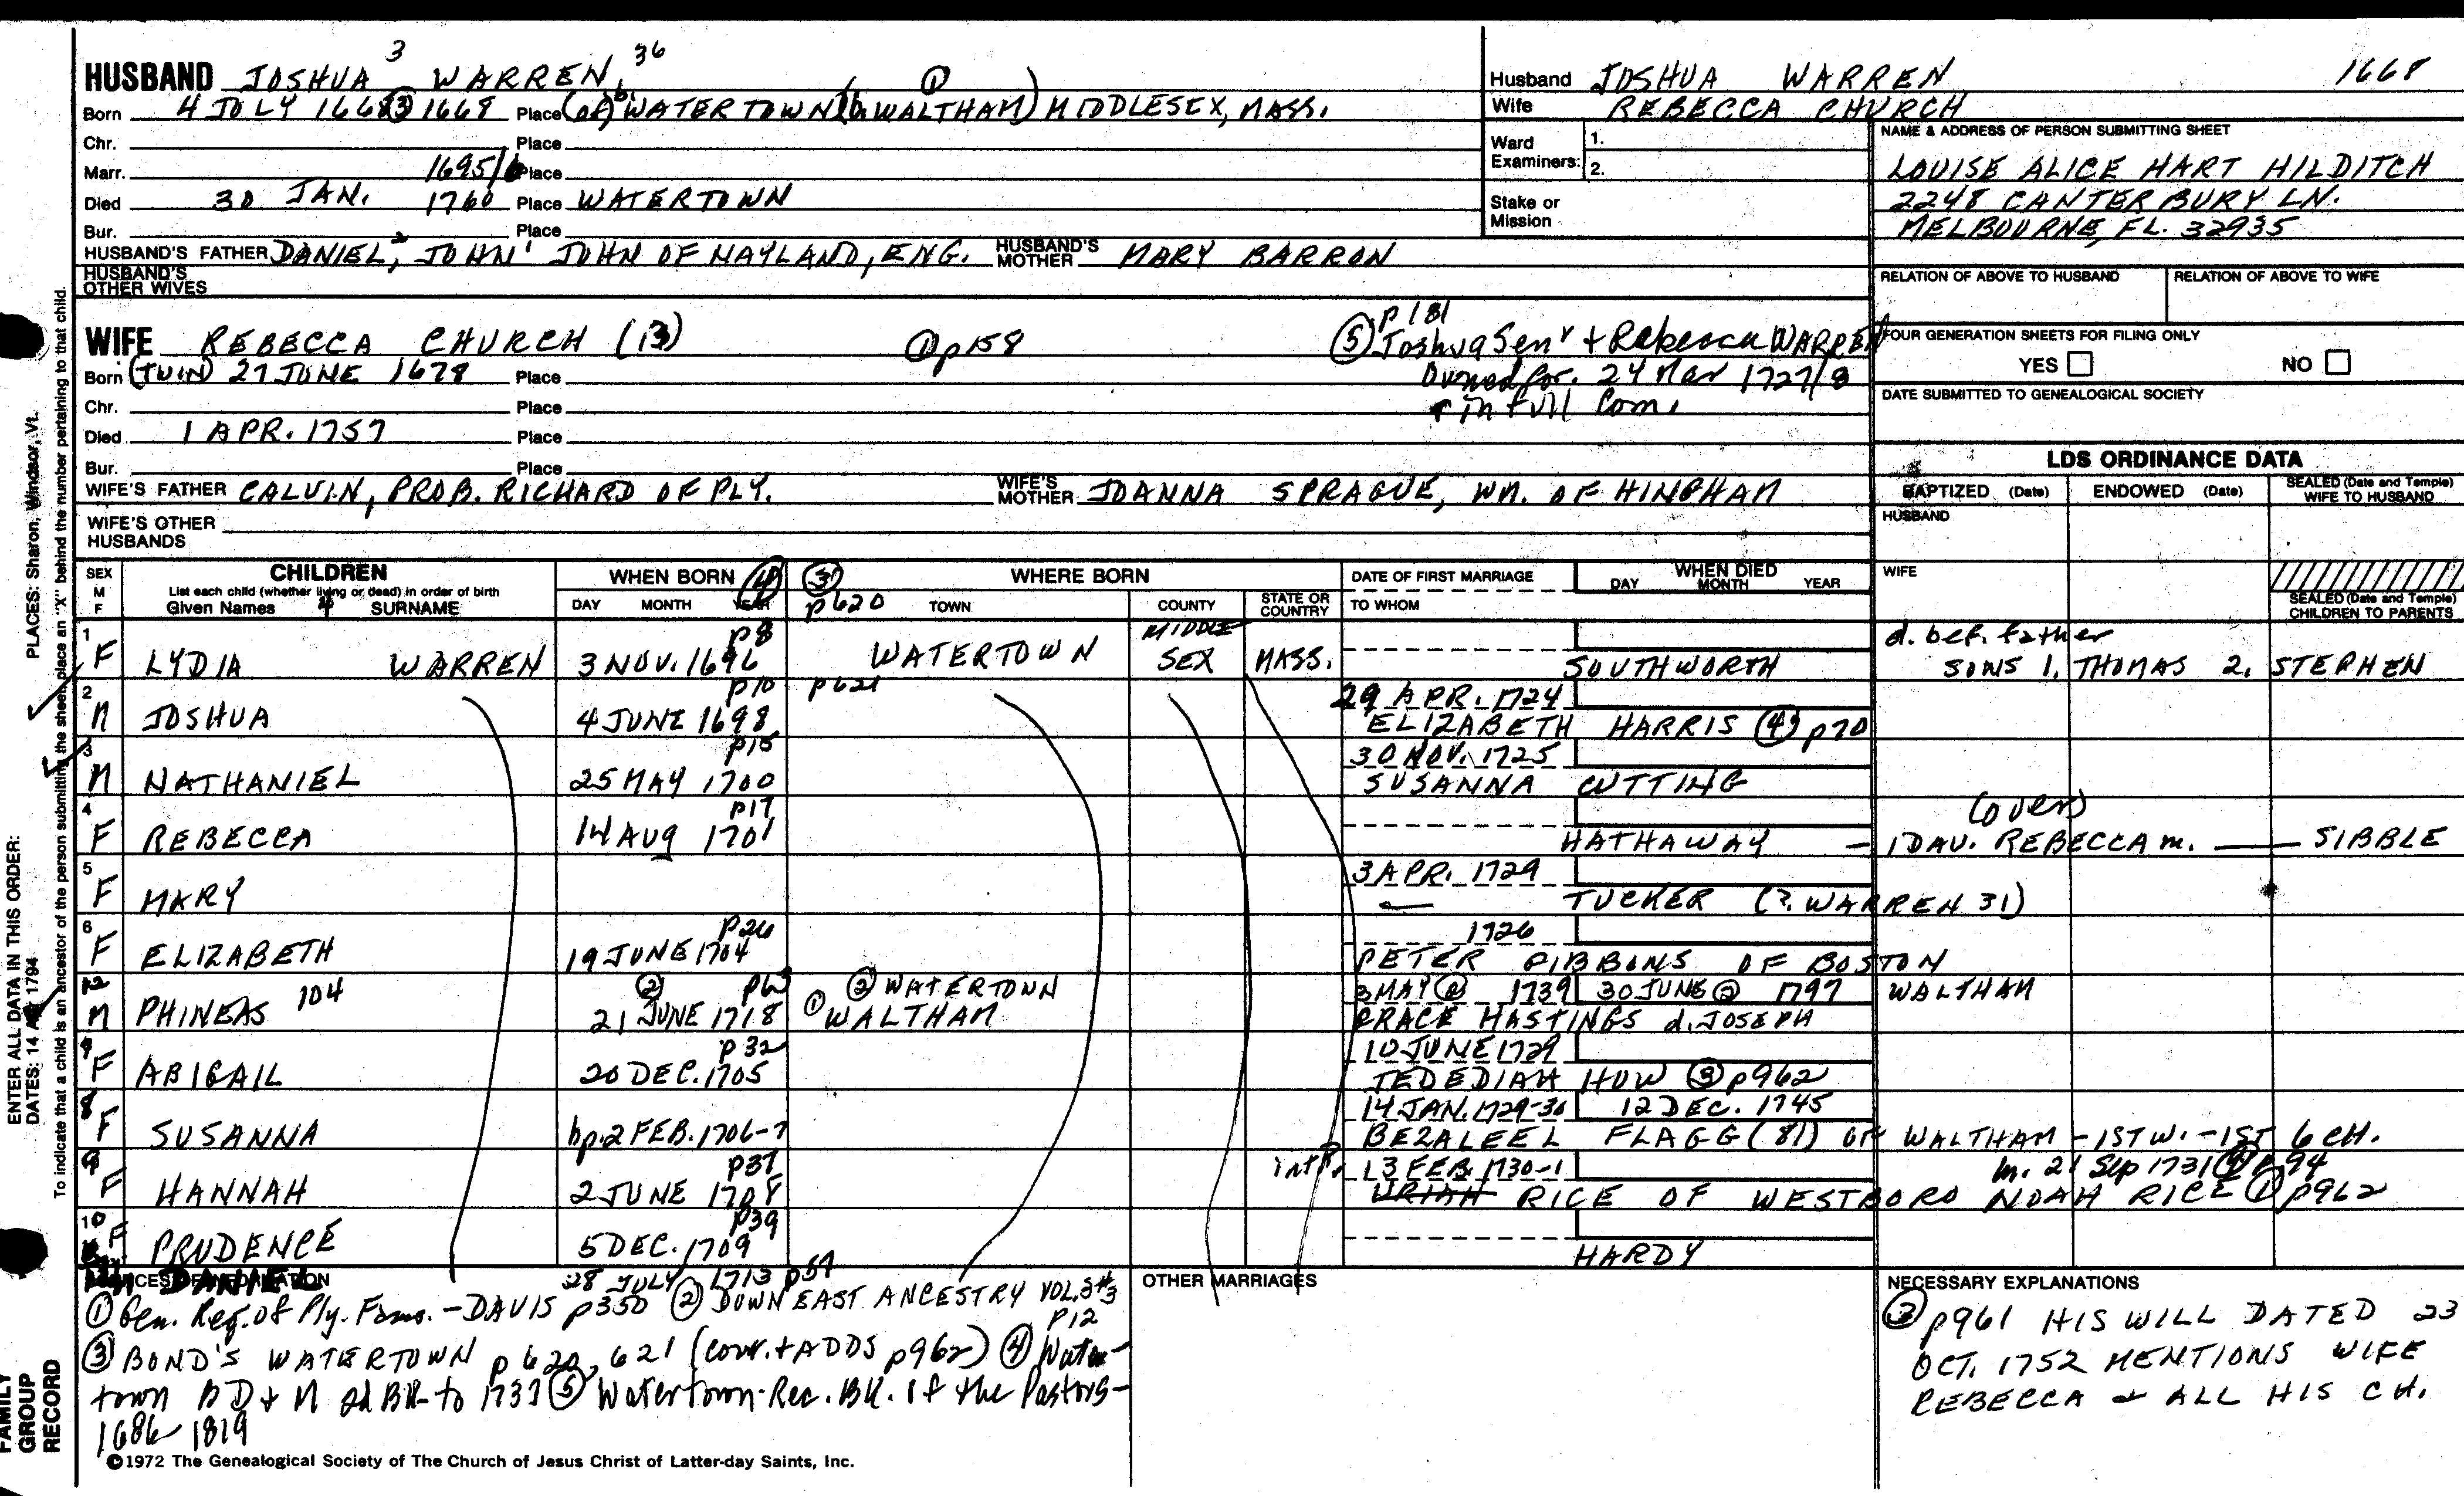 HUSBAND JOSHUA 3 WARREN, 36
Born 4 JULY 1668 ③ 1668 Place (of) b. WATERTOWN (b. WALTHAM) ① MIDDLESEX, MASS.
Chr. Place
Marr. 1695/6 Place
Died 30 JAN. 1760 Place WATERTOWN
Bur. Place
HUSBAND'S FATHER DANIEL, 2 JOHN 1 JOHN OF NAYLAND, ENG. HUSBAND'S MOTHER MARY BARRON
HUSBAND'S OTHER WIVES
Husband JOSHUA WARREN 1668
Wife REBECCA CHURCH
Ward Examiners: 1.
2.
Stake or Mission
NAME & ADDRESS OF PERSON SUBMITTING SHEET
LOUISE ALICE HART HILDITCH
2248 CANTERBURY LN.
MELBOURNE, FL. 32935
RELATION OF ABOVE TO HUSBAND RELATION OF ABOVE TO WIFE
FOUR GENERATION SHEETS FOR FILING ONLY
YES NO
DATE SUBMITTED TO GENEALOGICAL SOCIETY
WIFE REBECCA CHURCH (13) ① p158
Born (TWIN) 27 JUNE 1678 Place
Chr. Place
Died 1 APR. 1757 Place
Bur. Place
p 181
⑤ Joshua Senr + Rebecca WARREN
Owned for. 24 Mar 1727/8
+ in full Com.
WIFE'S FATHER CALVIN, PROB. RICHARD OF PLY. WIFE'S MOTHER JOANNA SPRAGUE, WM. OF HINGHAM
WIFE'S OTHER HUSBANDS
LDS ORDINANCE DATA
BAPTIZED (Date) ENDOWED (Date) SEALED (Date and Temple) WIFE TO HUSBAND
HUSBAND
WIFE
SEALED (Date and Temple) CHILDREN TO PARENTS
SEX M F
CHILDREN
List each child (whether living or dead) in order of birth
Given Names 4 SURNAME
WHEN BORN ④
DAY MONTH YEAR
③ p620 WHERE BORN
TOWN COUNTY STATE OR COUNTRY
DATE OF FIRST MARRIAGE
TO WHOM
WHEN DIED
DAY MONTH YEAR
1 p8 MIDDLE d. bef. father
F LYDIA WARREN 3 NOV. 1696 WATERTOWN SEX MASS. SOUTHWORTH SONS 1. THOMAS 2. STEPHEN
2 p10 p621 29 APR. 1724
M JOSHUA 4 JUNE 1698 ELIZABETH HARRIS ④ p70
3 p15 30 NOV. 1725
M NATHANIEL 25 MAY 1700 SUSANNA CUTTING
4 p17 (over)
F REBECCA 14 AUG 1701 HATHAWAY — 1 DAU. REBECCA m. —— SIBBLE
5 3 APR. 1729
F MARY — TUCKER (?. WARREN 31)
6 p26 1726
F ELIZABETH 19 JUNE 1704 PETER GIBBONS OF BOSTON
12 ② p63 ② WATERTOWN 3 MAY ② 1739 30 JUNE ② 1797 WALTHAM
M PHINEAS 104 21 JUNE 1718 ① WALTHAM GRACE HASTINGS d. JOSEPH
p 32 10 JUNE 1729
F ABIGAIL 20 DEC. 1705 JEDEDIAH HOW ③ p962
8 14 JAN. 1729-30 12 DEC. 1745
F SUSANNA bp. 2 FEB. 1706-7 BEZALEEL FLAGG (81) OF WALTHAM - 1ST W. - 1ST 6 CH.
9 p37 intP. 13 FEB. 1730-1 m. 21 Sep 1731 ④ p 94
F HANNAH 2 JUNE 1708 URIAH RICE OF WESTBORO NOAH RICE ① p962
10 p39
F PRUDENCE 5 DEC. 1709 HARDY
DANIEL 28 JULY 1713 p57
SOURCES OF INFORMATION
① Gen. Reg. of Ply. Fams. - DAVIS p350 ② DOWN EAST ANCESTRY VOL. 3 #3
p12
③ BOND'S WATERTOWN p 620, 621 (corr. + ADDS p962) ④ Water-
town B D + M 2d BK to 1737 ⑤ Watertown Rec. BK. of the Pastors -
1686-1819
OTHER MARRIAGES
NECESSARY EXPLANATIONS
③ p961 HIS WILL DATED 23
OCT. 1752 MENTIONS WIFE
REBECCA + ALL HIS CH.
©1972 The Genealogical Society of The Church of Jesus Christ of Latter-day Saints, Inc.
PLACES: Sharon, Windsor, Vt.
ENTER ALL DATA IN THIS ORDER:
DATES: 14 1794
To indicate that a child is an ancestor of the person submitting the sheet, place an "X" behind the number pertaining to that child.
FAMILY
GROUP
RECORD